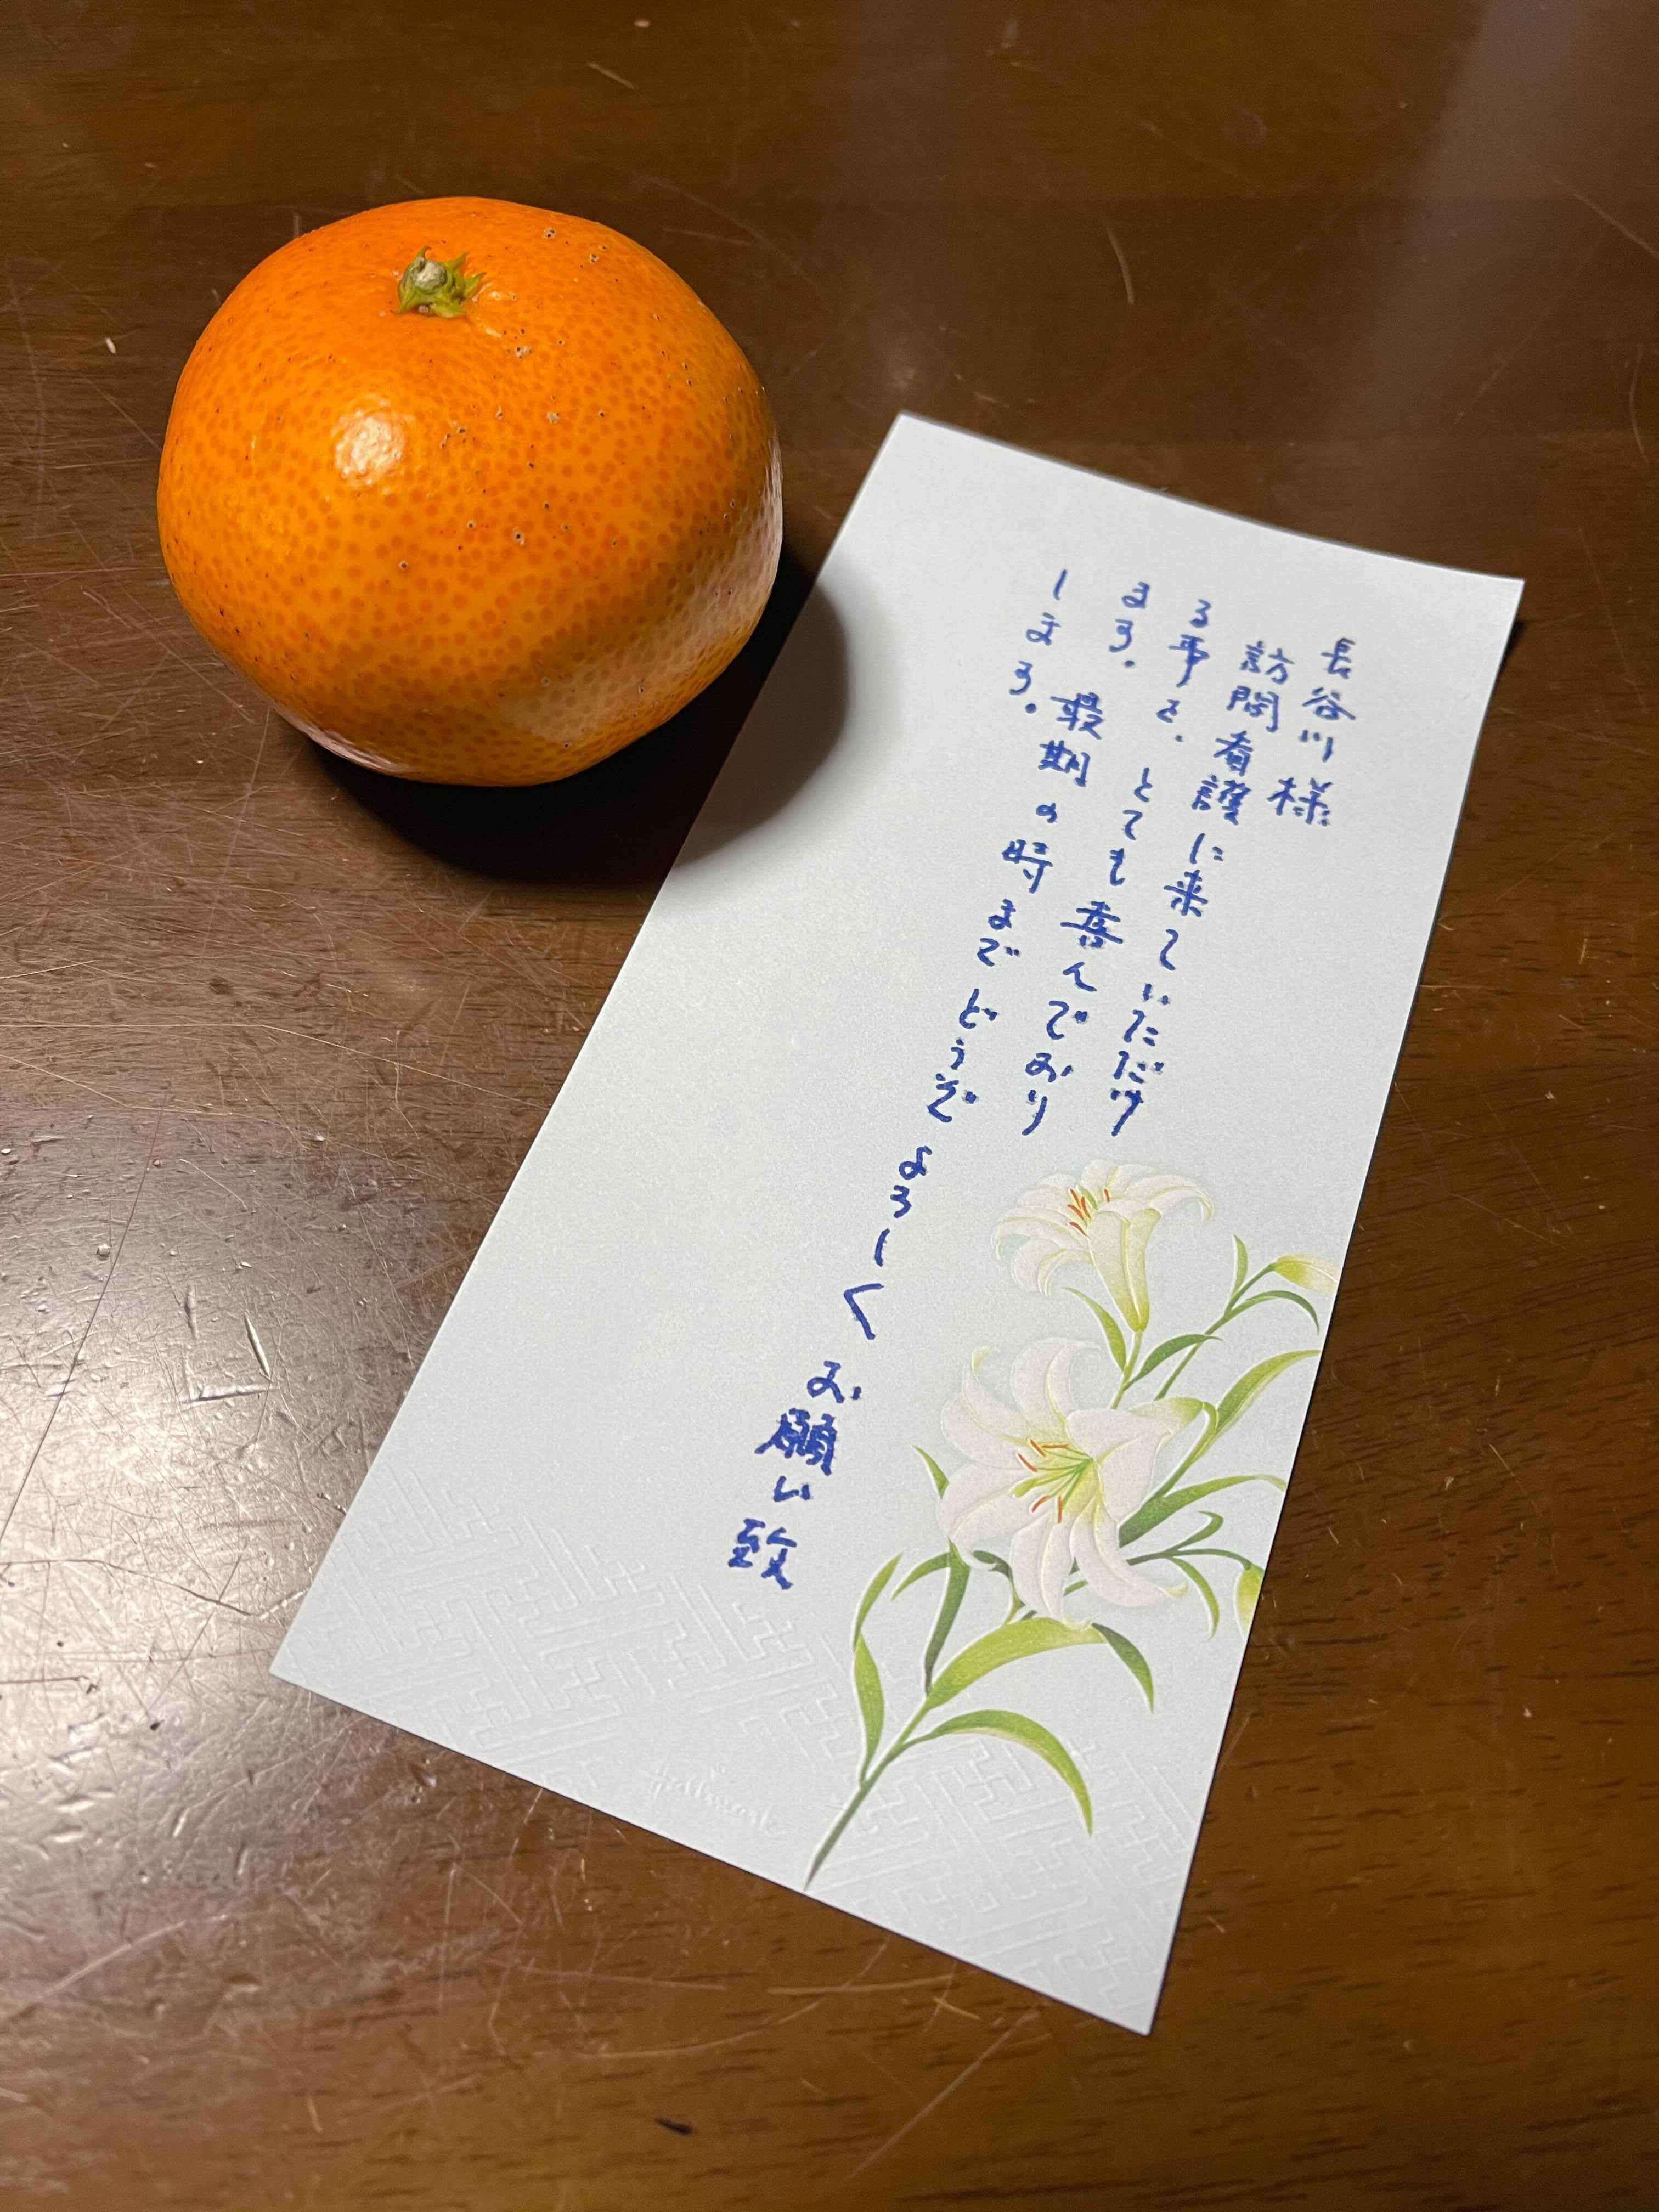 長谷川様
訪問看護に来ていただけ
る事を、とても喜んでおり
ます。最期の時までどうぞよろしくお願い致
します。
Hallmark